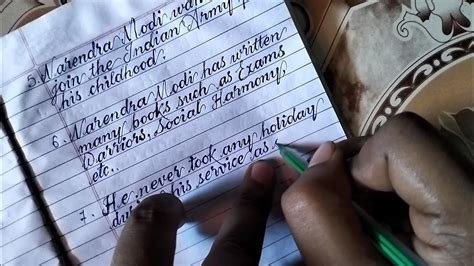 5. Narendra Modi wan
join the Indian Army
his childhood.
6. Narendra Modi has written
many books such as Exams
Warriors, Social Harmony,
etc..
7. He never took any holiday
his service as